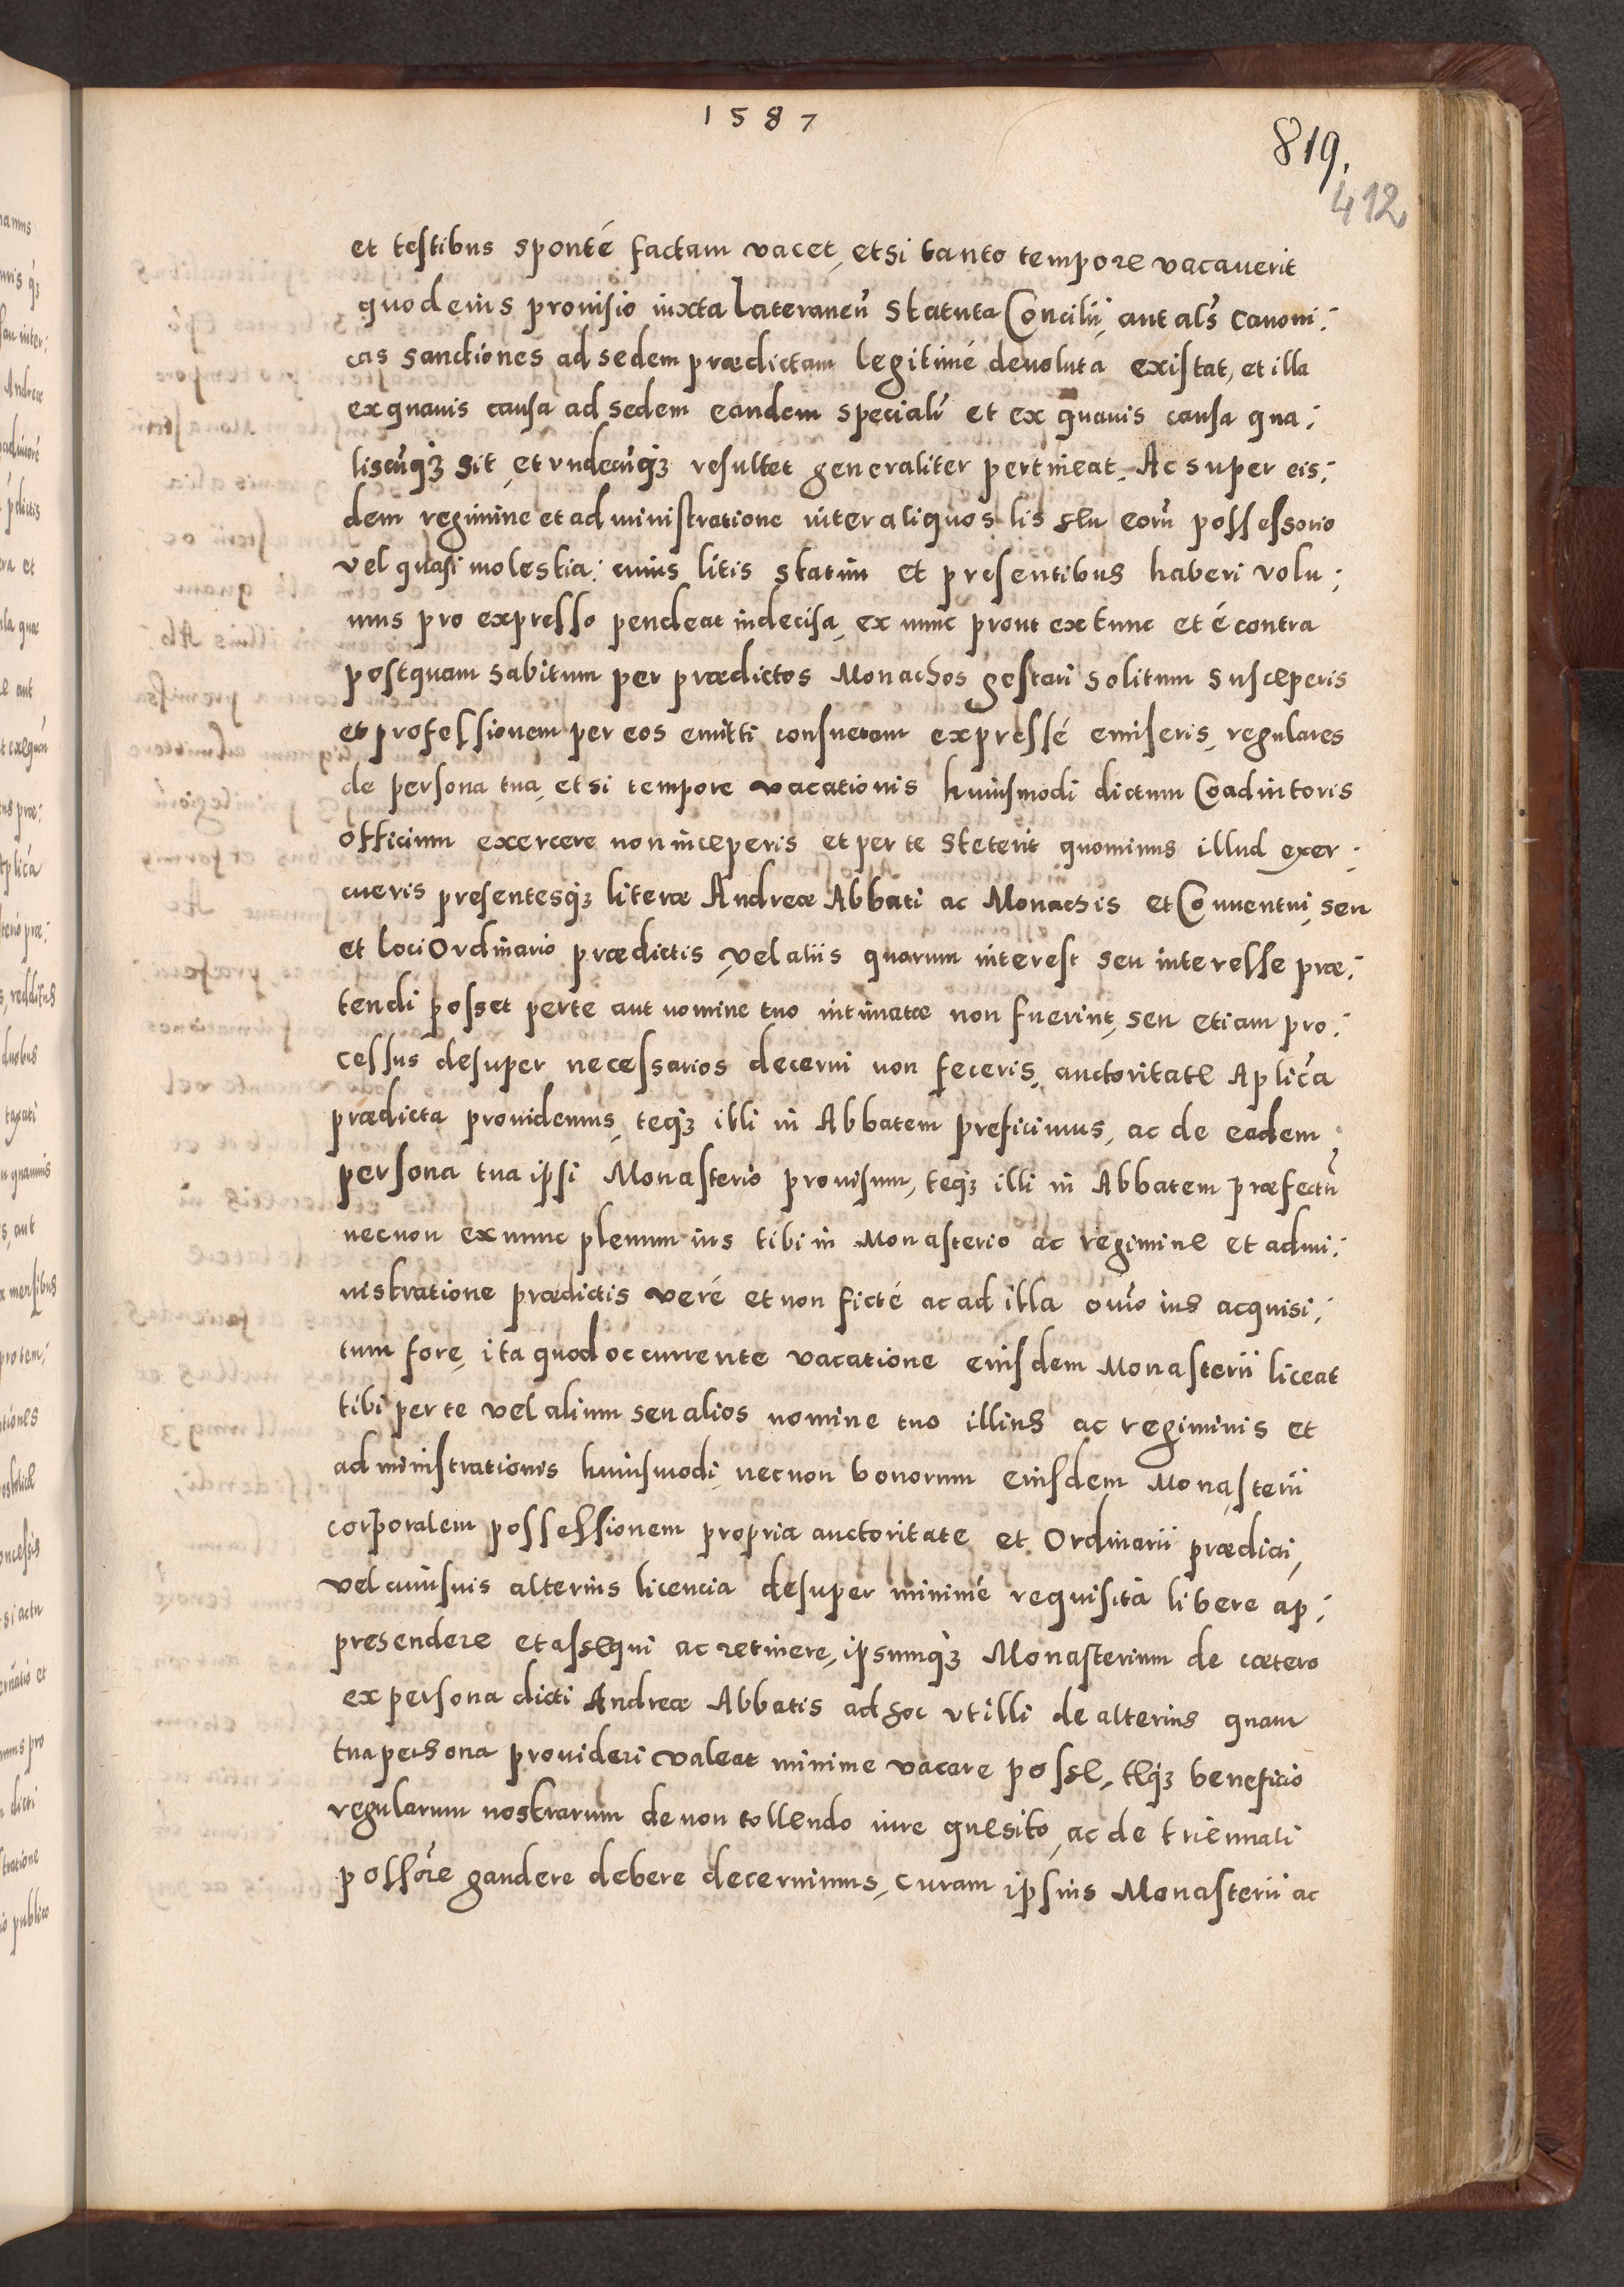 1587
819.
412
et testibus sponté factam vacet, etsi tanto tempore vacauerit
quod eius prouisio iuxta Lateraneñ statuta Concilii, aut als̃ canoni:
cas sanctiones ad sedem prædictam legitimé deuoluta existat, et illa
ex quauis causa ad sedem eandem specialr̃ et ex quauis causa qua:
liscũqꝫ sit, et vndecũqꝫ resultet generaliter pertineat, Ac super eis:
dem regimine et administratione inter aliquos lis seu eorũ possessorio
vel quasi molestia: cuius litis statum et presentibus haberi volu:
mus pro expresso pendeat indecisa, ex nunc prout ex tunc et é contra
postquam habitum per prædictos Monachos gestari solitum susceperis
et professionem per eos emitti consuetam expressé emiseris, regulares
de persona tua, etsi tempore vacationis huiusmodi dictum Coadiutoris
officium exercere non inceperis et per te steterit quominus illud exer:
cueris presentesqꝫ literæ Andreæ Abbati ac Monachis et Conuentui, seu
et loci Ordinario prædictis, vel aliis quorum interest seu interesse præ:
tendi posset per te aut nomine tuo intimatæ non fuerint, seu etiam pro:
cessus desuper necessarios decerni non feceris, auctoritate Aplica
prædicta prouidemus, teqꝫ illi in Abbatem preficimus, ac de eadem
persona tua ipsi Monasterio prouisum, teqꝫ illi in Abbatem præfectũ
necnon ex nunc plenum ius tibi in Monasterio ac regimine et admi:
nistratione prædictis veré et non ficté ac ad illa om̃o ius acquisi:
tum fore, ita quod occurrente vacatione eiusdem Monasterii liceat
tibi per te vel alium seu alios nomine tuo illius ac regiminis et
administrationis huiusmodi, necnon bonorum eiusdem Monasterii
corporalem possessionem propria auctoritate et Ordinarii prædicti,
vel cuiusuis alterius licencia desuper minimé requisita libere ap:
prehendere et assequi ac retinere, ipsumqꝫ Monasterium de cætero
ex persona dicti Andreæ Abbatis ad hoc vt illi de alterius quam
tua persona prouideri valeat minime vacare posse, teqꝫ beneficio
regularum nostrarum de non tollendo iure quesito, ac de triennali
possor̃e gaudere debere decernimus, curam ipsius Monasterii ac